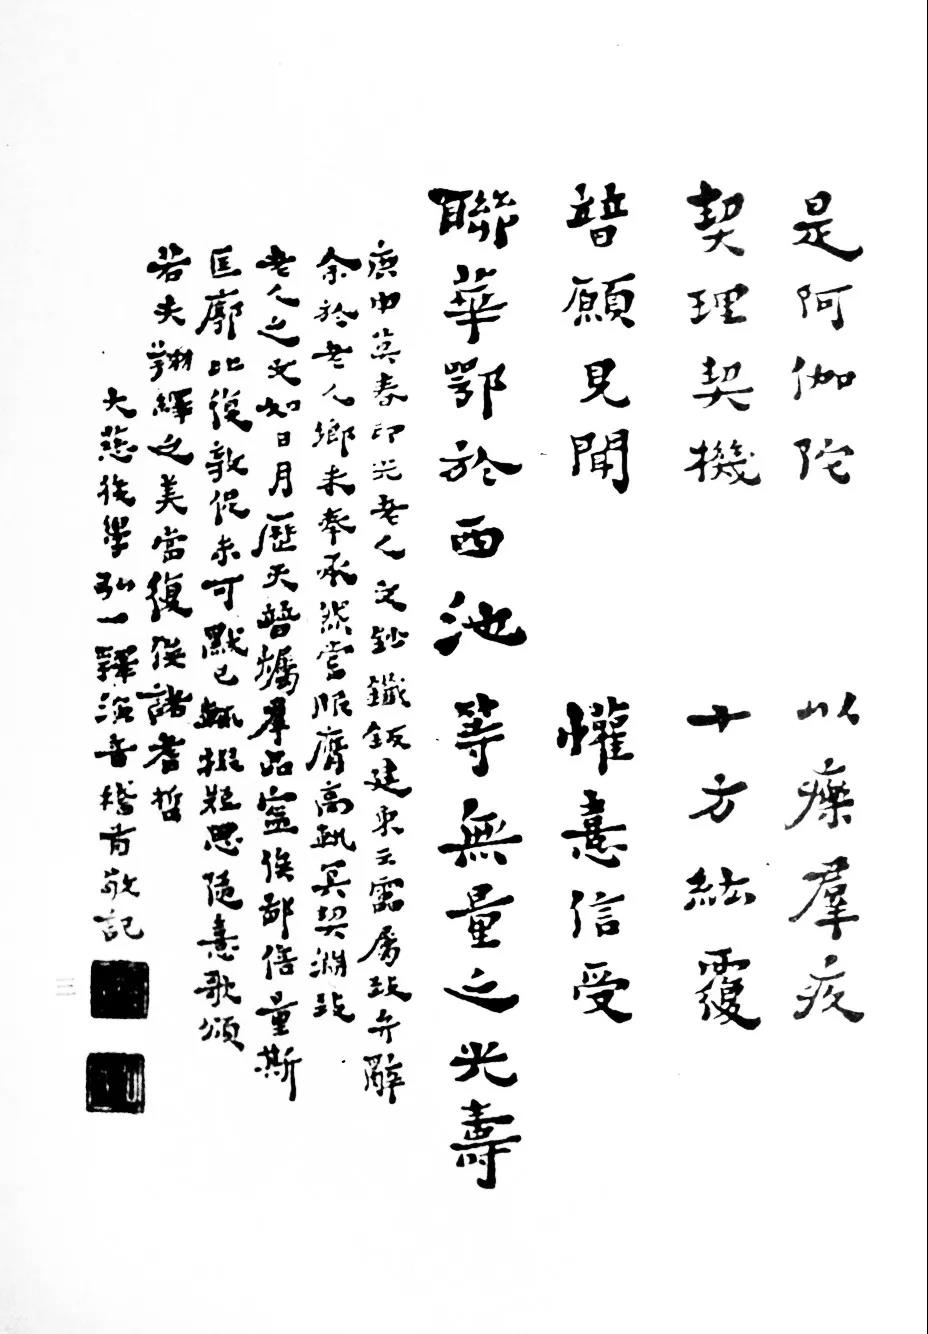 是阿伽陀 以療羣疚
契理契機 十方宏覆
普願見聞 懽喜信受
聯華鄂於西池 等無量之光壽
庚申暮春印光老人文鈔鐫版建東云靁屬致弁辭
余於老人鄉未奉承然嘗服膺高軌冥契淵致
老人之文如日月歷天普燭羣品寧俟鄙倍量斯
匡廓比復敦促未可默已輒掇粗思隨喜歌頌
若夫翔繹之美當復俟諸耆哲
大慈後學弘一釋演音稽首敬記
三